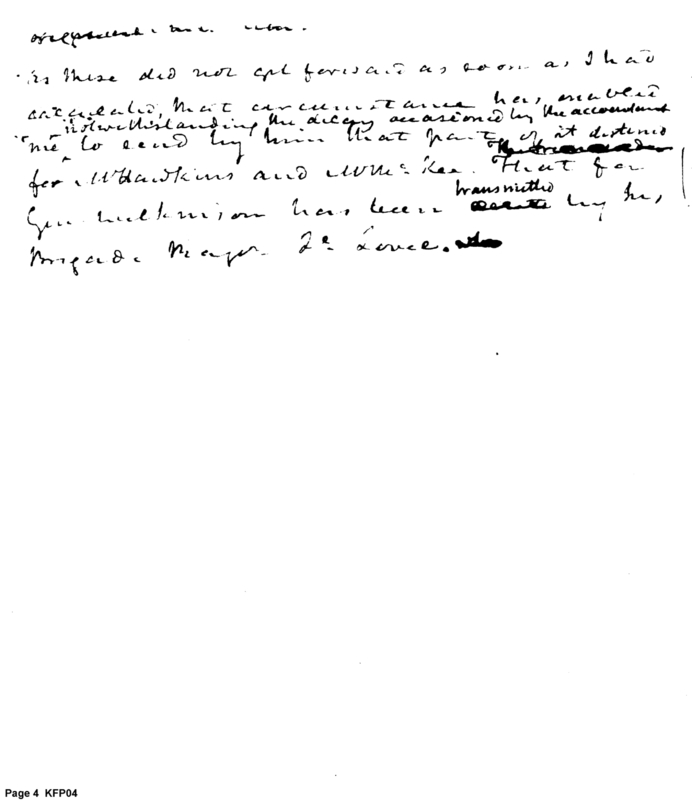 As these did not get forward as soon as I had
calculated, that circumstance has enabled
notwithstanding the delay occasioned by the accountant
me to send by him that part of it destined
for Mr Hawkins and Mr McKee. That for
transmitted
Gen Wilkinson has been by his
Brigade Major Lovell.
Page 4 KFP04